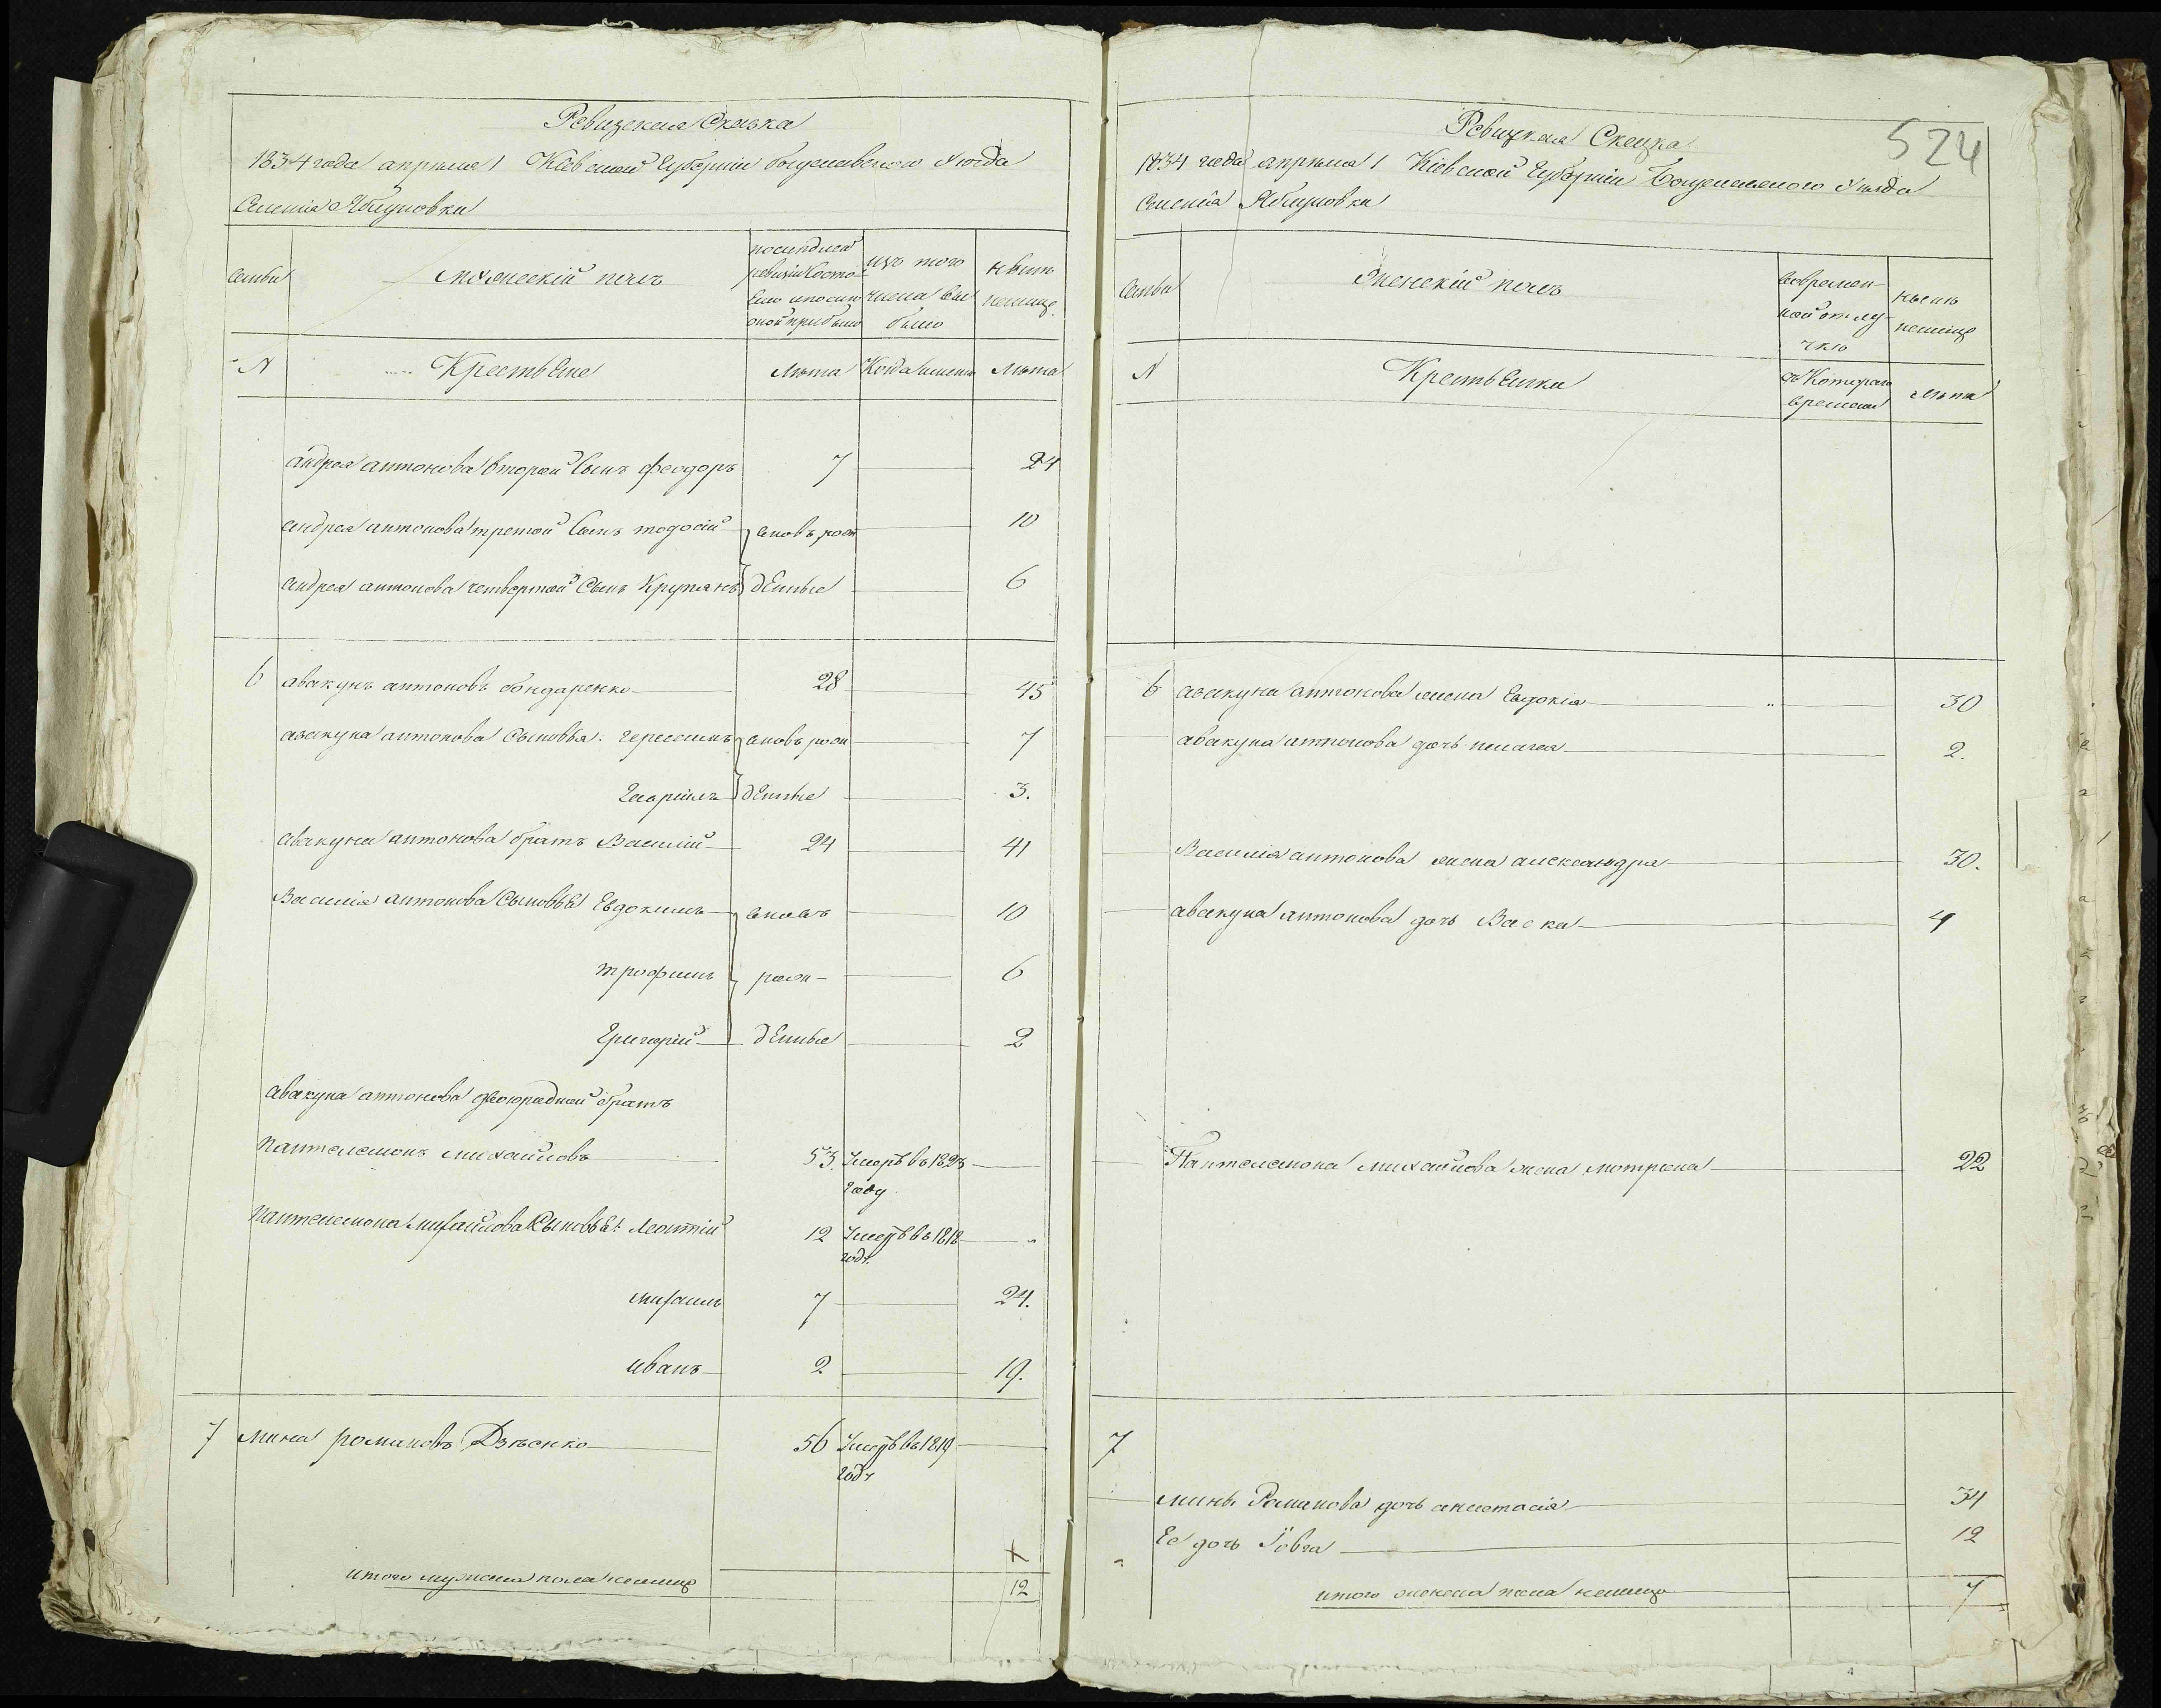 Ревизская Сказка
1834 года апреля 1 Киевской Губернии богуславского уезда
Селения Яблуновки
Семьи
мужеский полъ
последней ревизии состояло и после оной прибыло
изъ того числа выбыло
ныне налицо
N
Крестьяне
Лета
Когда именно
Лета
андрея антонова второй Сынъ феодоръ 7 21
андрея антонова третой Сынъ тодосий вновь рож 10
андрея антонова четвертой Сынъ денные 6
6 авакумъ антоновъ бондаренко 28 45
авакума антонова Сыновья: герасимъ вновь рож 7
Гаврiилъ денные 3.
авакума антонова братъ Василiй 24 41
Василiя антонова Сыновья Евдокимъ вновь 10
трофимъ рож- 6
Григорiй денные 2
авакума антонова двоюродной братъ
Пантелемонъ михайловъ 53. Умеръ въ 1823
году
пантелемона михайлова Сыновья: Леонтiй 12 Умеръ въ 1818
годе
михаилъ 7 24.
иванъ 2 19.
7 мина романовъ 56 Умеръ въ 1819
годе
итого мужеска пола налицо 12
524
Ревизская Сказка
1834 года апреля 1 Кiевской Губернiи Богуславского уезда
Селенiя Яблуновки
Семьи
Женскiй полъ
во временной отлучке
ныне налицо
N
Крестьянки
съ Котораго времени
лета
6 авакума антонова жена Евдокiя 30
авакума антонова дочь пелагея 2.
Василiя антонова жена александра 30.
авакума антонова дочь Васка 4
Пантелемона михайлова жена мотрона 22
7
мины Романова дочь анастасiя 31
Ее дочь Ïовга 12
итого женска пола налицо 7